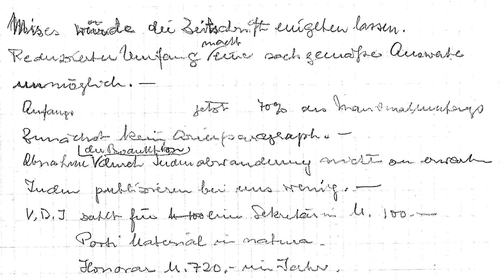 Mises würde die Zeitschrift eingehen lassen.
Reduzierter Umfang macht eine sachgemäße Auswahl
unmöglich. —
Anfangs jetzt 70% des Maximalumfangs
Zunächst kein Arierparagraph. —
Abnahme der Produktion durch Judenabwanderung nicht zu erwarten
Juden publizieren bei uns wenig. —
V.D.I zahlt für eine Sekretärin M. 100.—
Porti Material in natura.
Honorar M. 720,- im Jahr.